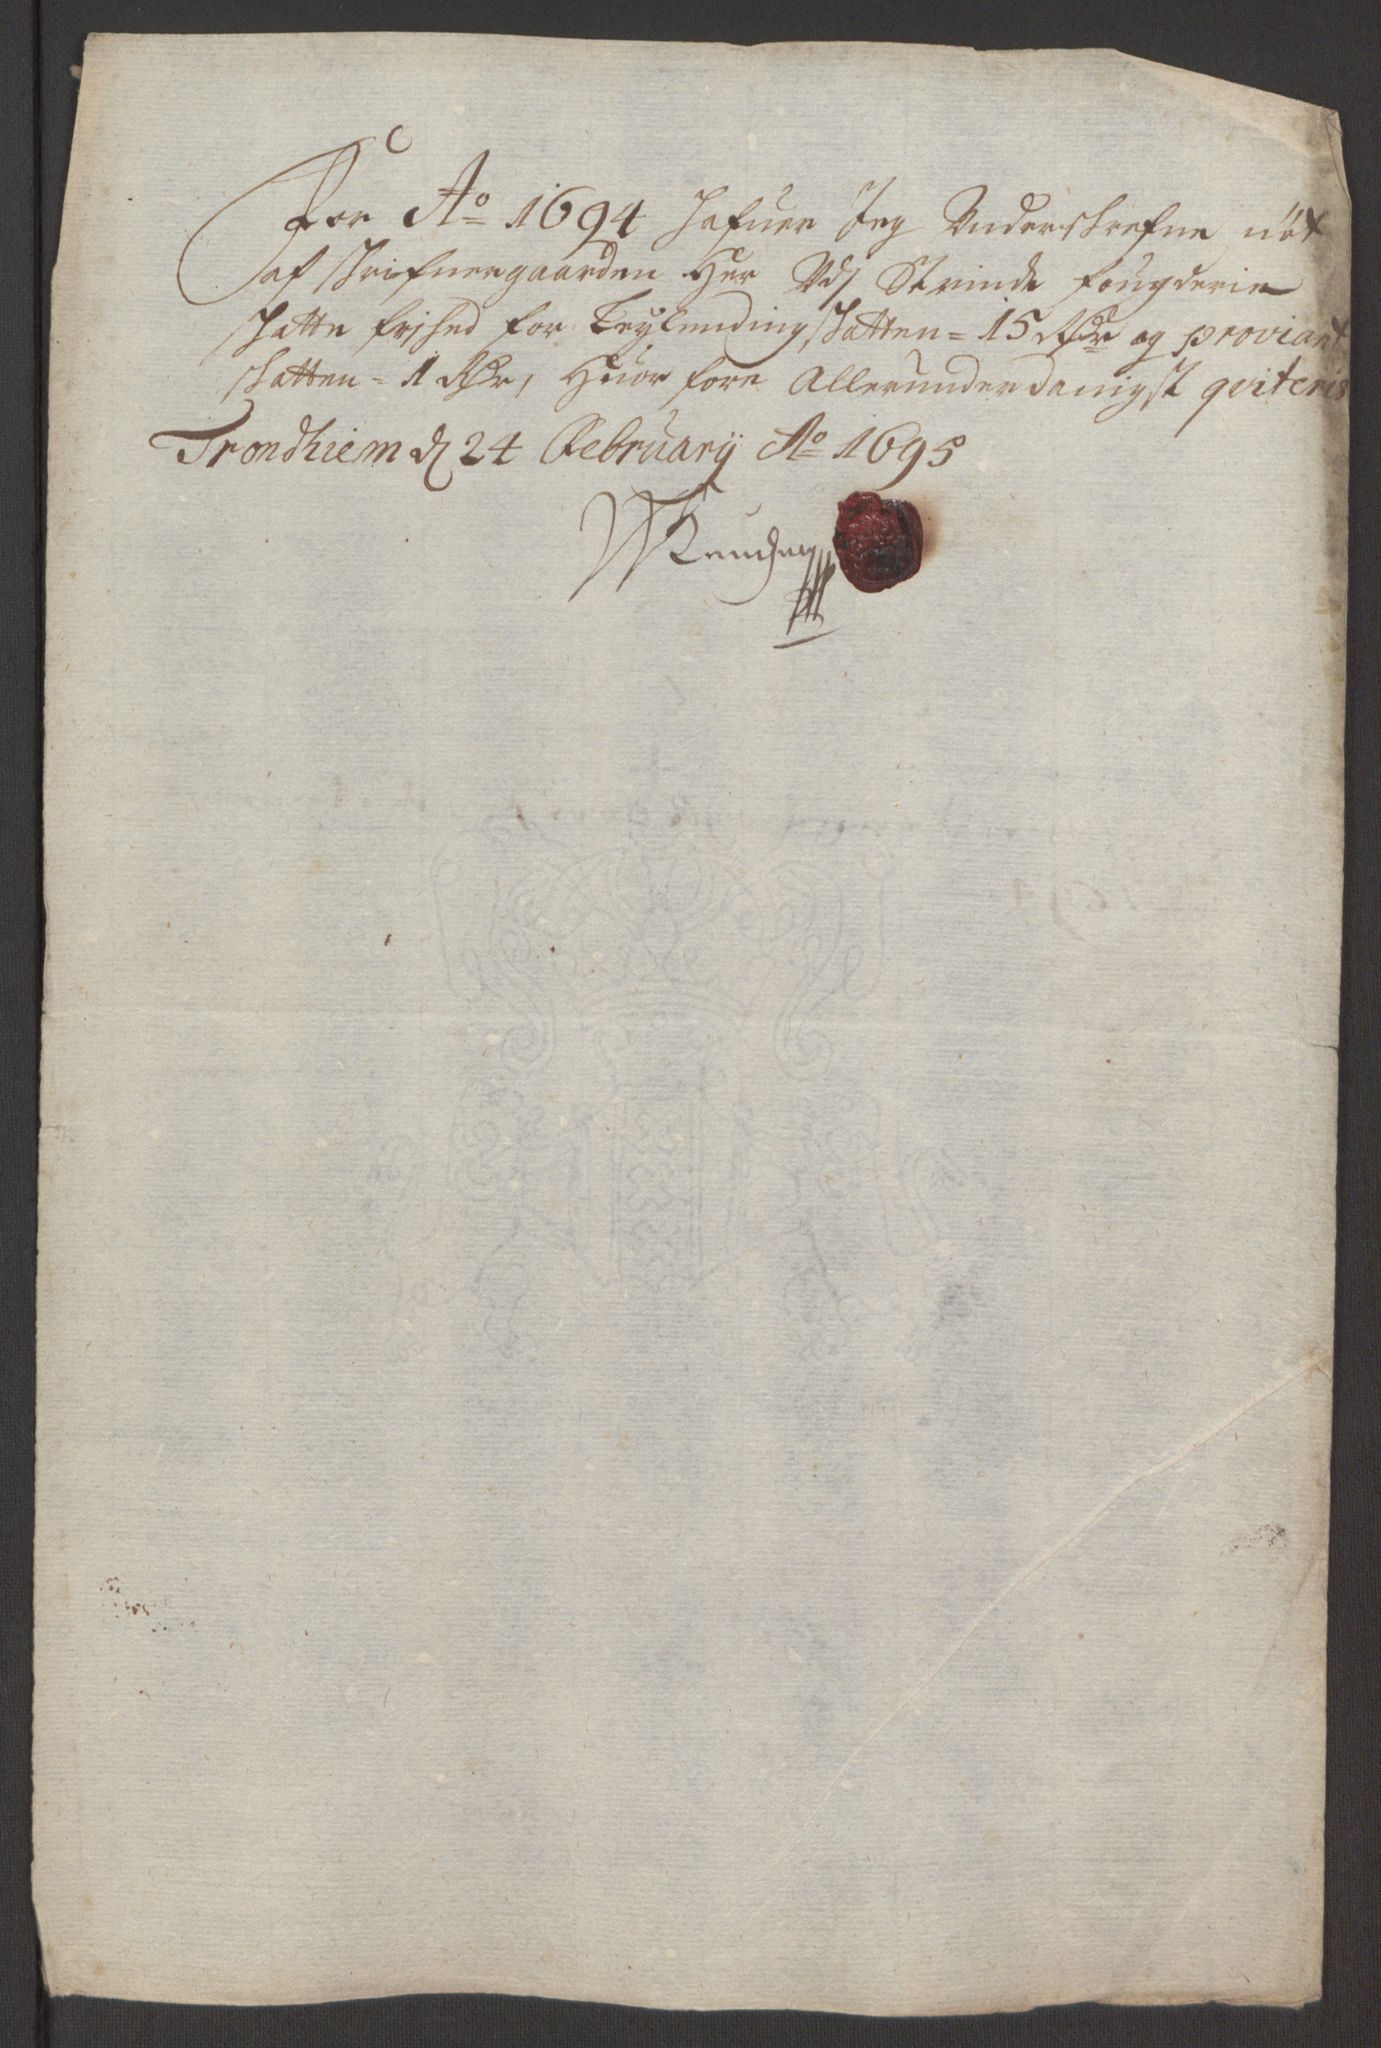 For Ao 1694 hafuer Jeg Underskrefne nöt
af skrifuergaarden Her Udj Strinde fougderie
skatte frihed for Leylendings skatten = 15 Rdr og proviant
skatten = 1 Rdr, Huor fore Allerunderdanigst qviteris
Trondhiem d 24 February Ao 1695